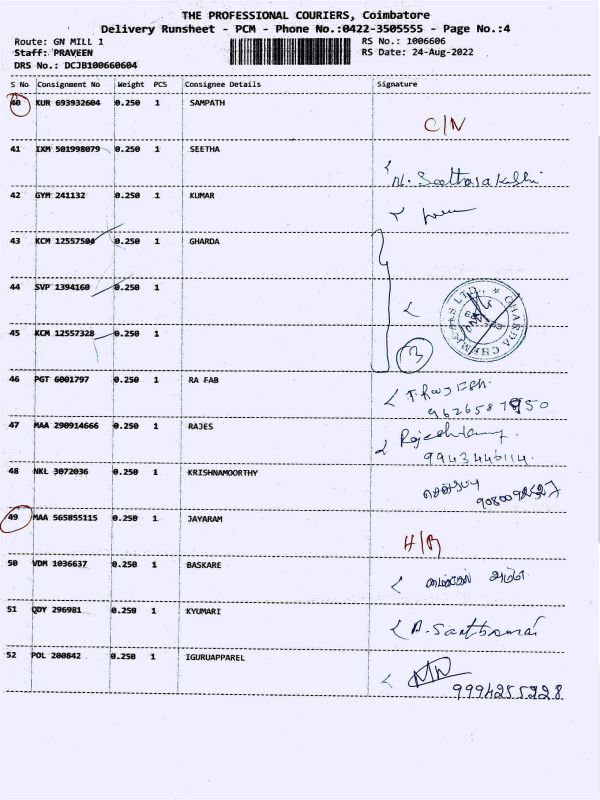 THE PROFESSIONAL COURIERS, Coimbatore
Delivery Runsheet - PCM - Phone No.:0422-3505555 - Page No.:4
Route: GN MILL 1 RS No.: 1006606
Staff: PRAVEEN RS Date: 24-Aug-2022
DRS No.: DCJB100660604
S No Consignment No Weight PCS Consignee Details Signature
40 KUR 693932604 0.250 1 SAMPATH C/N
41 IXM 501998079 0.250 1 SEETHA
42 GYM 241132 0.250 1 KUMAR
43 KCM 12557504 0.250 1 GHARDA
44 SVP 1394160 0.250 1
45 KCM 12557328 0.250 1 3
46 PGT 6001797 0.250 1 RA FAB
47 MAA 290914666 0.250 1 RAJES
9943446114
48 NKL 3072036 0.250 1 KRISHNAMOORTHY
49 MAA 565855115 0.250 1 JAYARAM H/R
50 VDM 1036637 0.250 1 BASKARE
51 QDY 296981 0.250 1 KYUMARI
52 POL 200842 0.250 1 IGURUAPPAREL
9994255228